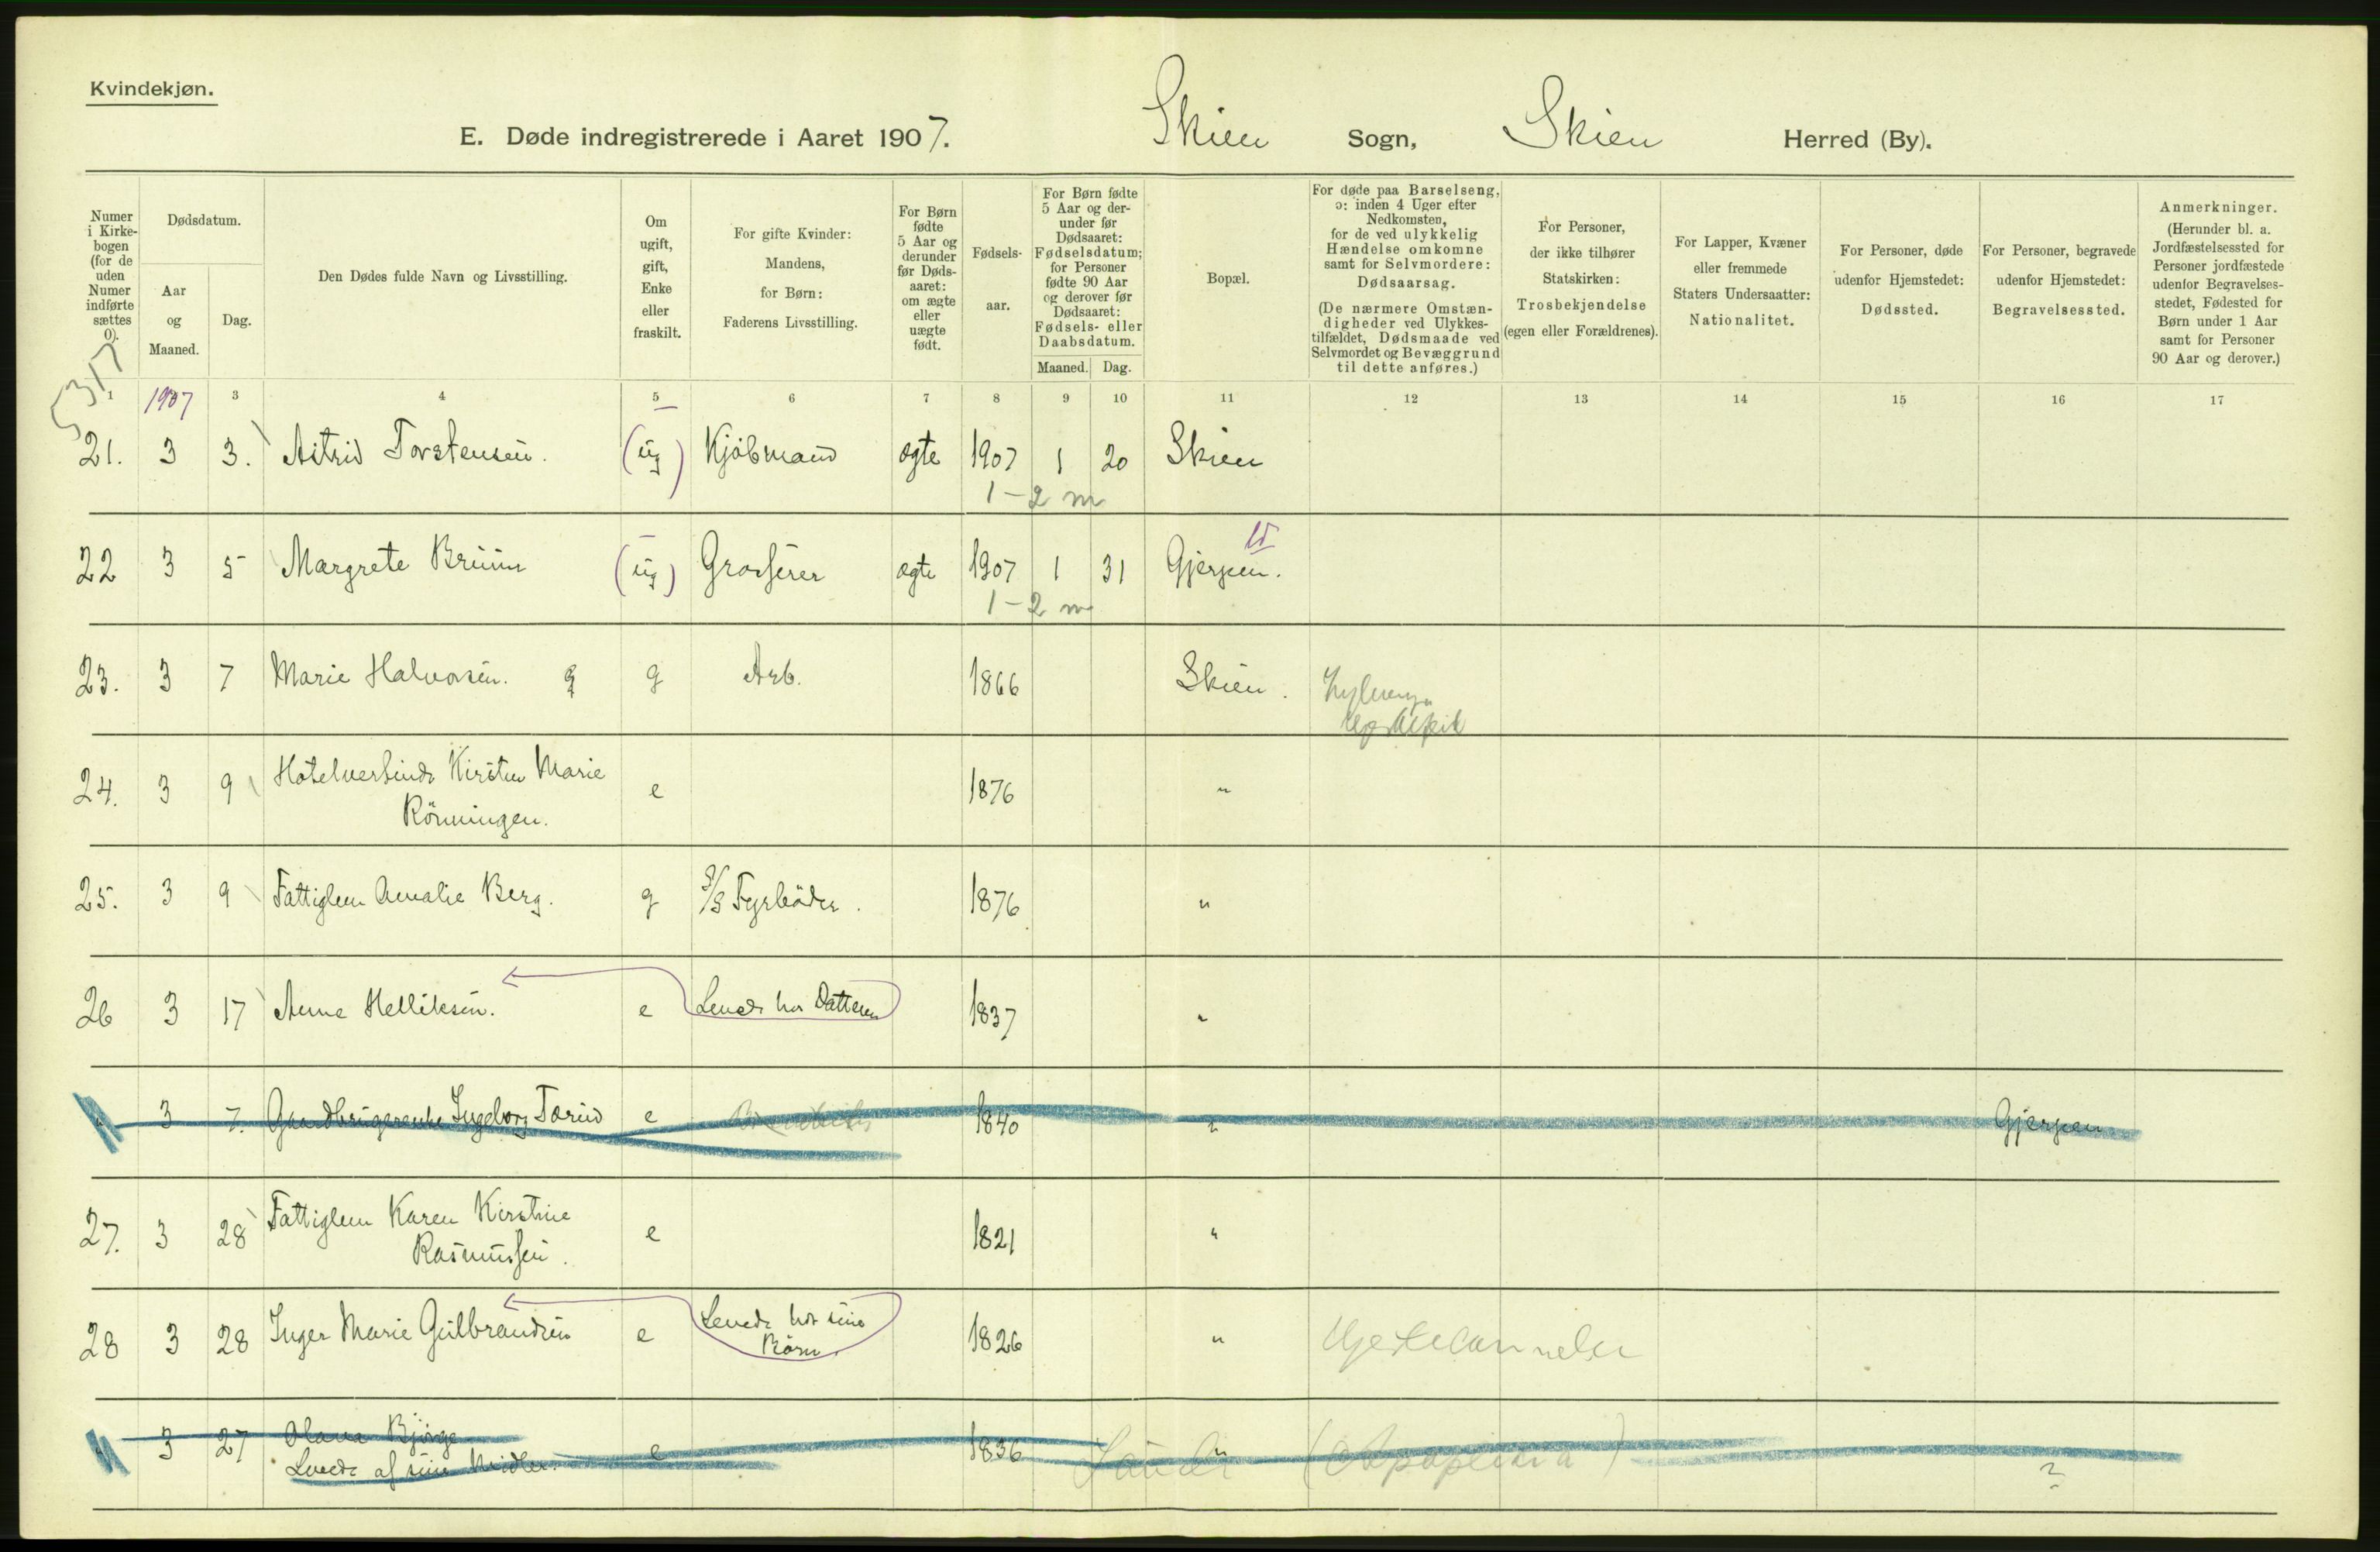 Kvindekjøn.
E. Døde indregistrerede i Aaret 1907. Skien Sogn, Skien Herred (By).
Numer i Kirke-bogen (for de uden Numer indførte sættes 0).
Dødsdatum.
Aar og Maaned.
Dag.
Den Dødes fulde Navn og Livsstilling.
Om ugift, gift, Enke eller fraskilt.
For gifte Kvinder: Mandens, for Børn: Faderens Livsstilling.
For Børn fødte 5 Aar og derunder før Døds-aaret: om ægte eller uægte født.
Fødsels-aar.
For Børn fødte 5 Aar og der-under før Dødsaaret: Fødselsdatum; for Personer fødte 90 Aar og derover før Dødsaaret: Fødsels- eller Daabsdatum.
Maaned. Dag.
Bopæl.
For døde paa Barselseng, ɔ: inden 4 Uger efter Nedkomsten, for de ved ulykkelig Hændelse omkomne samt for Selvmordere: Dødsaarsag.
(De nærmere Omstæn-digheder ved Ulykkes-tilfældet, Dødsmaade ved Selvmordet og Bevæggrund til dette anføres.)
For Personer, der ikke tilhører Statskirken: Trosbekjendelse (egen eller Forældrenes).
For Lapper, Kvæner eller fremmede Staters Undersaatter: Nationalitet.
For Personer, døde udenfor Hjemstedet: Dødssted.
For Personer, begravede udenfor Hjemstedet: Begravelsessted.
Anmerkninger. (Herunder bl. a. Jordfæstelsessted for Personer jordfæstede udenfor Begravelses-stedet, Fødested for Børn under 1 Aar samt for Personer 90 Aar og derover.)
5317
1 1907 3 4 5 6 7 8 9 10 11 12 13 14 15 16 17
21. 3 3. Astrid Torstensen. (ug) Kjøbmand ægte 1907 1 20 Skien
1-2 m
22 3 5 Margrete Bruun (ug) Grosserer ægte 1907 1 31 Gjerpen.
1-2 m
23. 3 7 Marie Halvorsen. g g Arb. 1866 Skien.
24. 3 9 Hotelvertinde Kirsten Marie
Rönningen. e 1876 "
25. 3 9 Fattiglem Amalie Berg. g Fyrbøder. 1876 "
26 3 17 Anne Helliksen. e Levede hos Datteren 1837 "
" 3 7. Gaardbrugerenke Ingeborg Torud e 1840 " Gjerpen
27. 3 28 Fattiglem Karen Kirstine
Rasmussen. e 1821 "
28 3 28 Inger Marie Gulbrandsen e Levede hos sine
Börn. 1826 "
" 3 27 Olava Bjørge
Levede af sine Midler. e 1836 " (Apoplexia) "